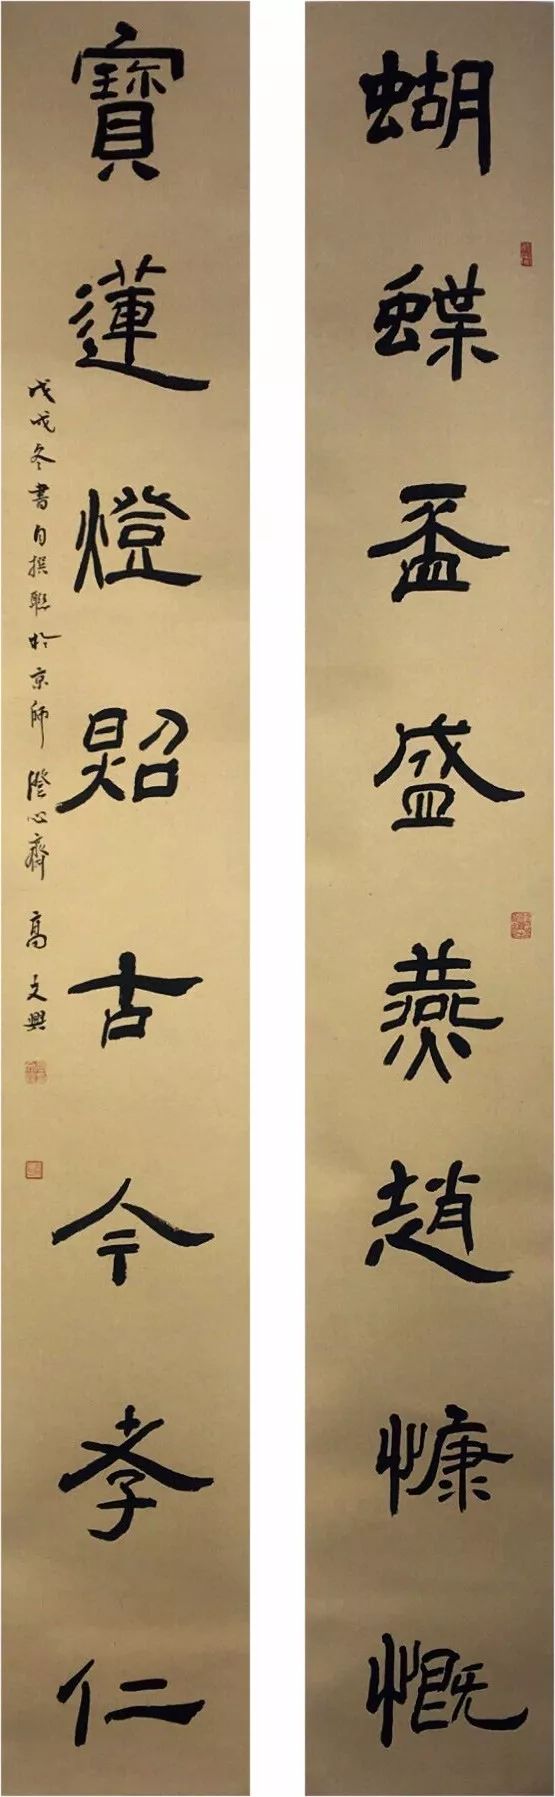 蝴蝶盃盛燕趙慷慨
寶蓮燈照古今孝仁
戊戌冬書自撰聯於京師澄心齋 高文興